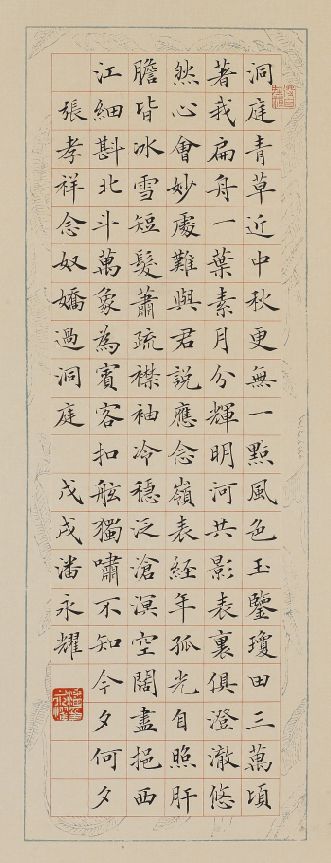 洞庭青草近中秋更無一點風色玉鑒瓊田三萬頃
著我扁舟一葉素月分輝明河共影表裏俱澄澈悠
然心會妙處難與君說應念嶺表経年孤光自照肝
膽皆冰雪短髮蕭疏襟袖冷穩泛滄溟空闊盡挹西
江細斟北斗萬象為賓客扣舷獨嘯不知今夕何夕
張孝祥念奴嬌過洞庭 戊戌潘永耀